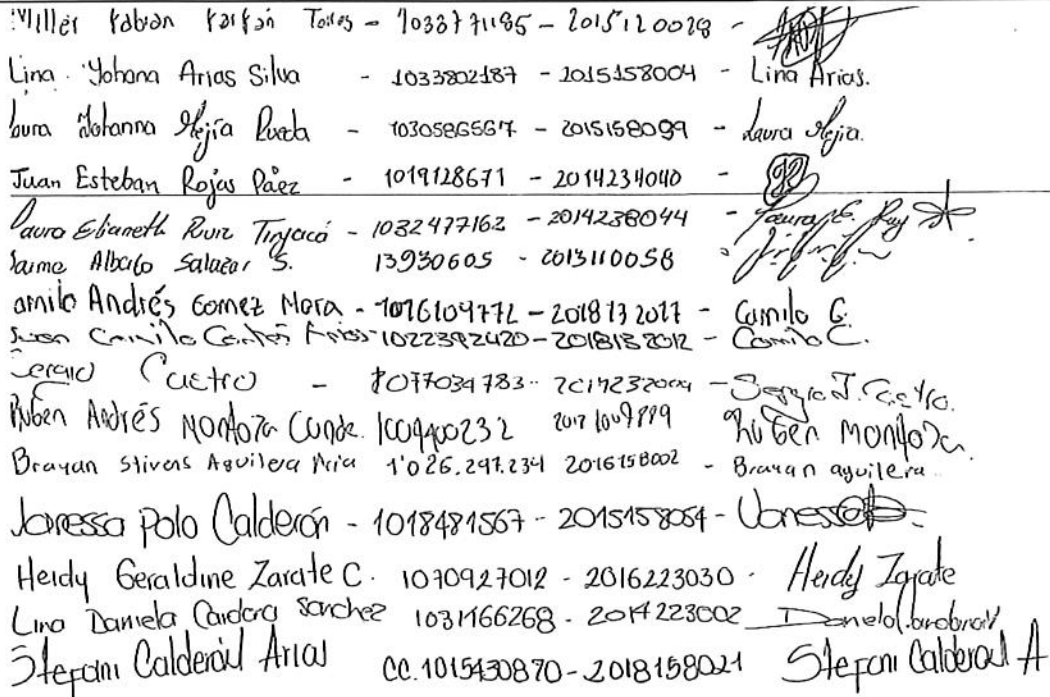 Miller Fabian Farfán Torres - 1033771185 - 2015120028 -
Lina Yohana Arias Silva - 1033802187 - 2015158004 - Lina Arias.
Laura Johanna Mejía Rueda - 1030586567 - 2015158099 - Laura Mejia.
Juan Esteban Rojas Páez - 1019128671 - 2014234040 -
Laura Elianeth Ruiz Tinjacá - 1032477162 - 2014238044 - Laura E. Ruiz
Jaime Albalo Salazar S. 13930605 - 2013110058
amilo Andrés Gomez Mora - 1016104772 - 2018132017 - Camilo G.
Juan Camilo Cortés Arias - 1022392420 - 2018132012 - Camilo C.
Sergio Castro - 1077034783 - - Sergio J. Castro.
Ruben Andrés Montoya Conde. 1009400232 Ruben Montoya
Brayan Stivens Aguilera Aria 1'026.297.234 2016158002 - Brayan aguilera
Vanessa Polo Calderón - 1018481567 - 2015158054 - Vanessa
Heidy Geraldine Zarate C. 1070927012 - 2016223030 - Heidy Zarate
Lina Daniela Sanchez 1031166268 - 2017223002
Stefani Calderón Arias CC. 1015430870 - 2018158021 Stefani Calderon A